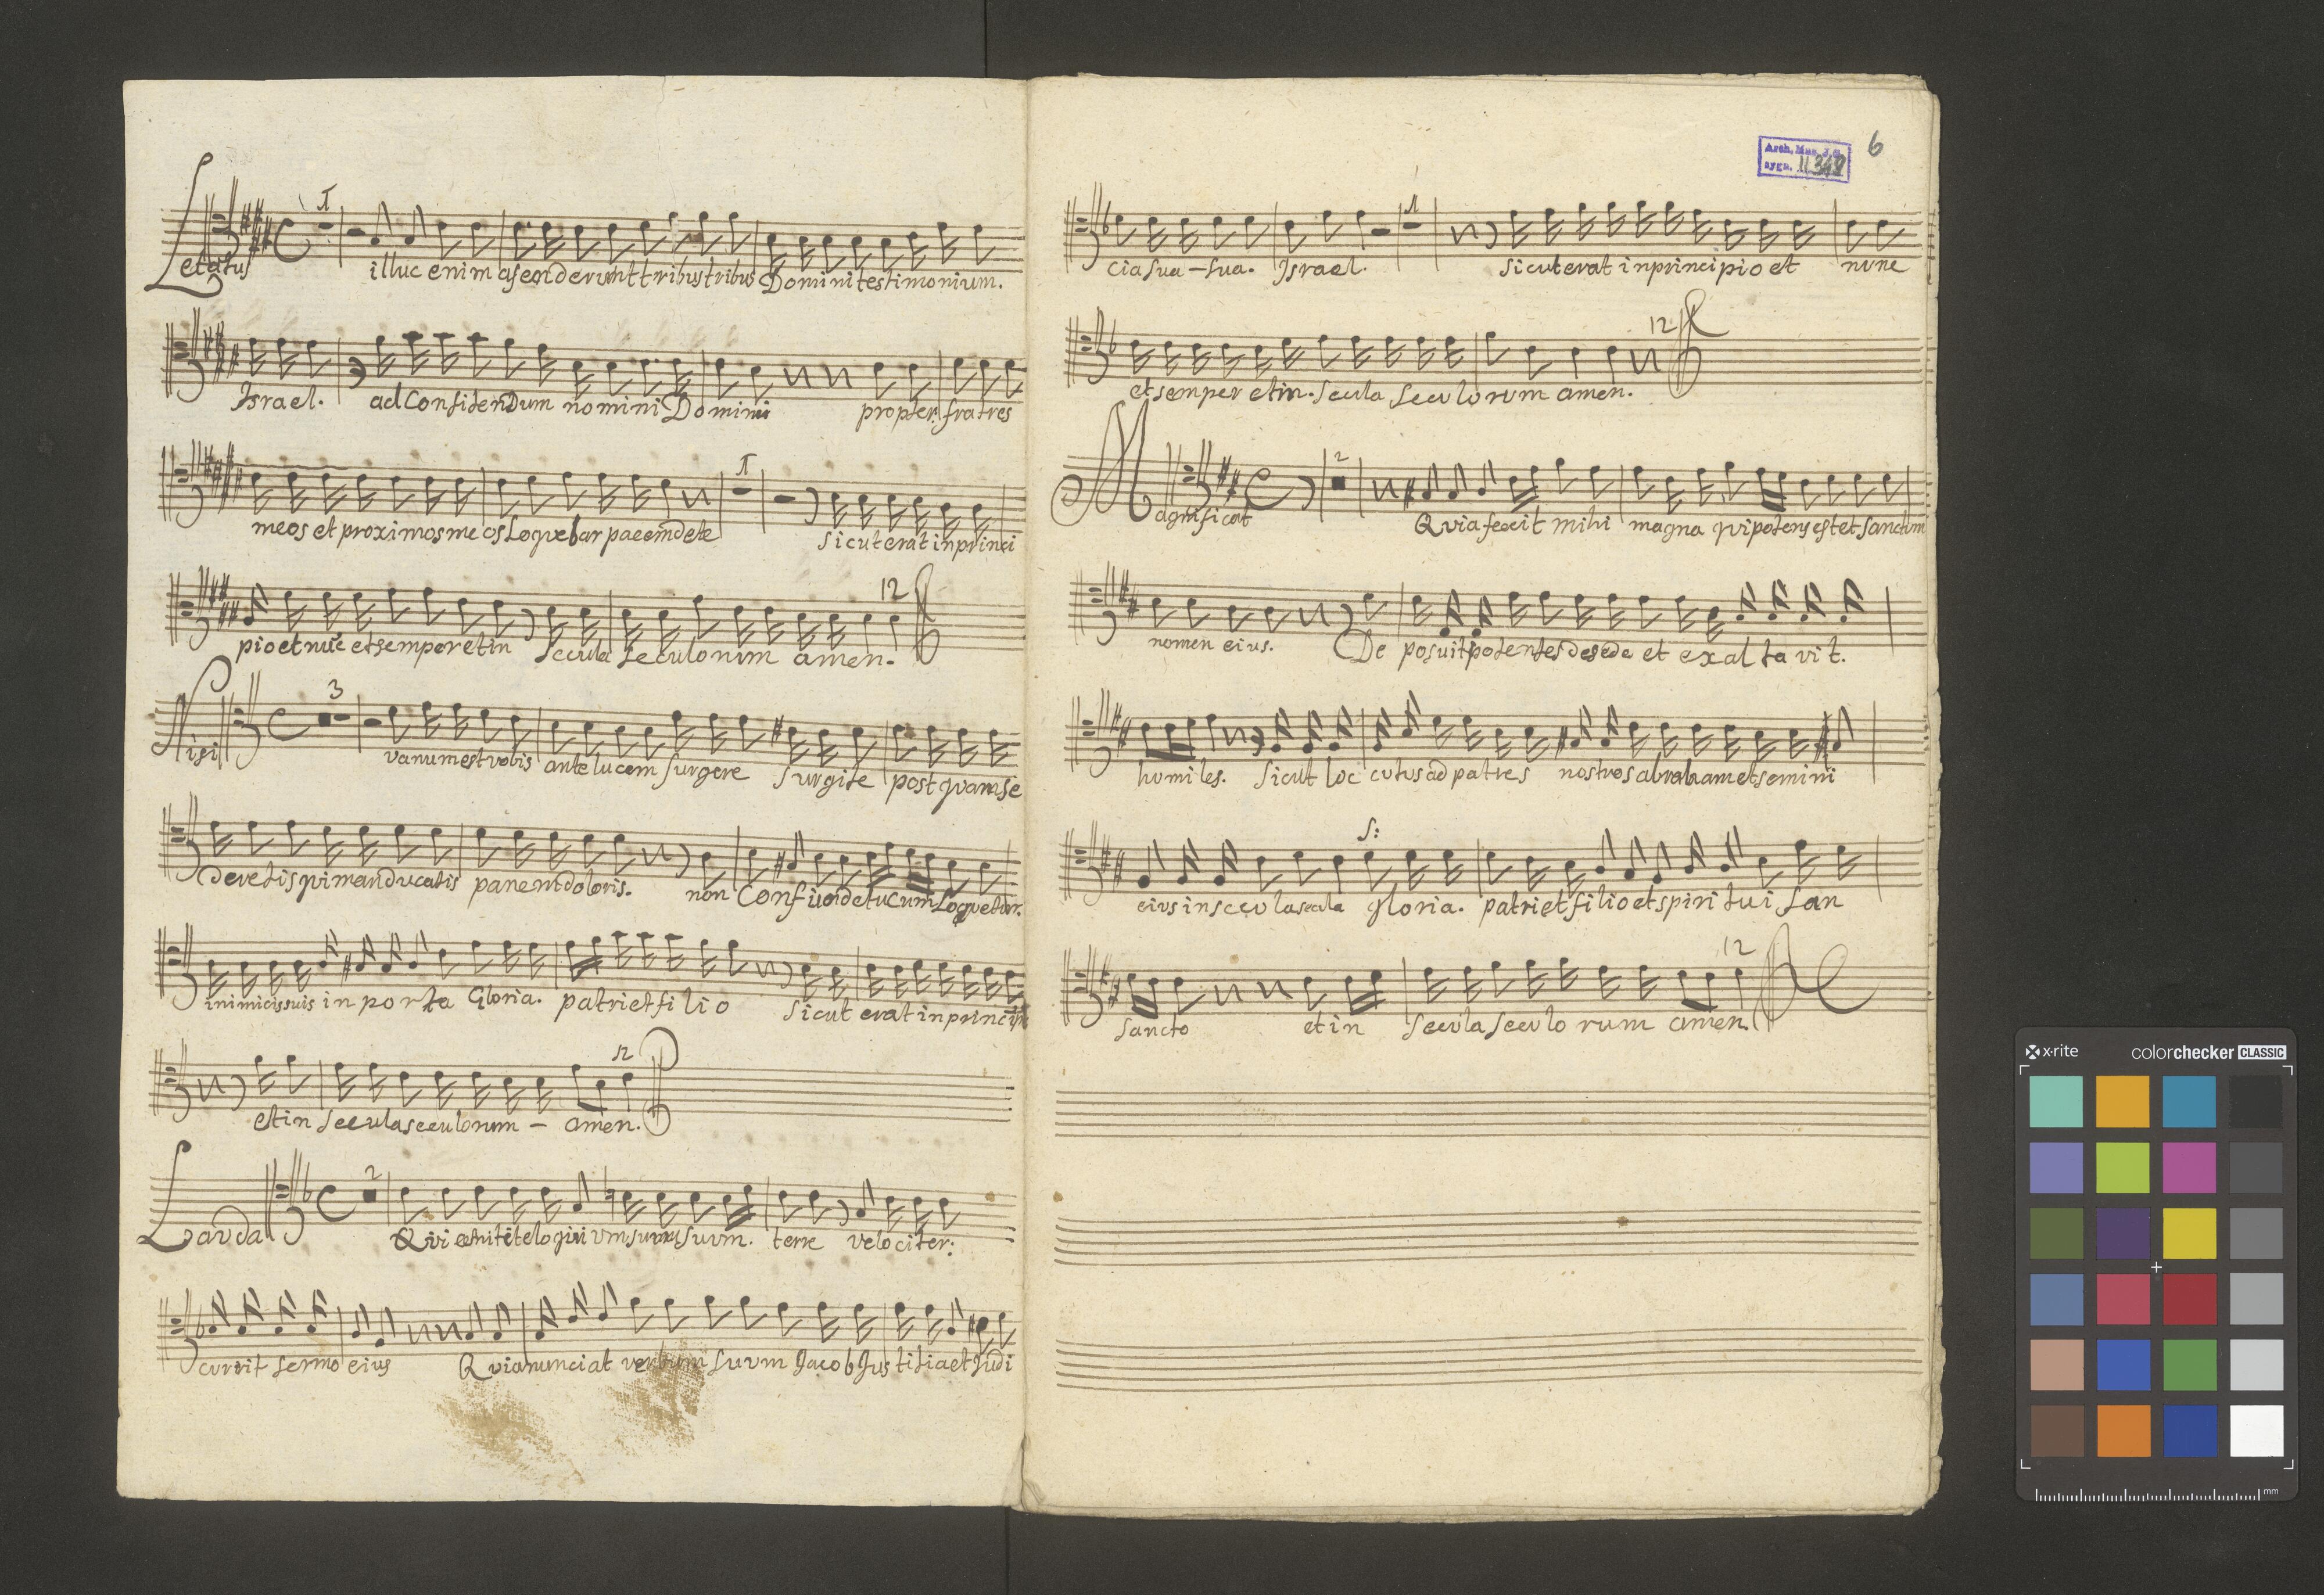 1
Letatus illuc enim asenderuntt tribus tribus Domini testimonium.
Israel. ad Confitendum nomini Domini propter. fratres
1
meos et proximos meos Loquebar pacem de te sicut erat in princi
12
pio et nuc et semper et in Secula Seculorum amen.
3
Nisi vanum est vobis ante lucem surgere surgite post quam se
deretis qui manducatis panem doloris. non Confundetu cum Loquetur.
inimicis suis in porta Gloria. patri et filio sicut erat in princip
12
et in Secula seculorum - amen.
2
Lauda Qvi emitit eloqui um suum suum. terre velociter:
currit sermo eius Qvi anunciat verbum suum Jacob Justitia et Judi
Arch. Mus. J.G.
sygn. II 348
6
1
cia sua - sua. Israel. sicut erat in principio et nunc
12
et semper et in. Secula Seculorum amen.
2
Magnificat Qvia fecit mihi magna qui potens est et Sanctum
nomen eius. De posuit potentes de sede et exaltavit.
humiles. sicut loc cutus ad patres nostros abraham et semini
S:
eius in secula secula gloria. patri et filio et spiritui San
12
sancto et in Secula Seculo rum amen
x·rite colorchecker CLASSIC
mm